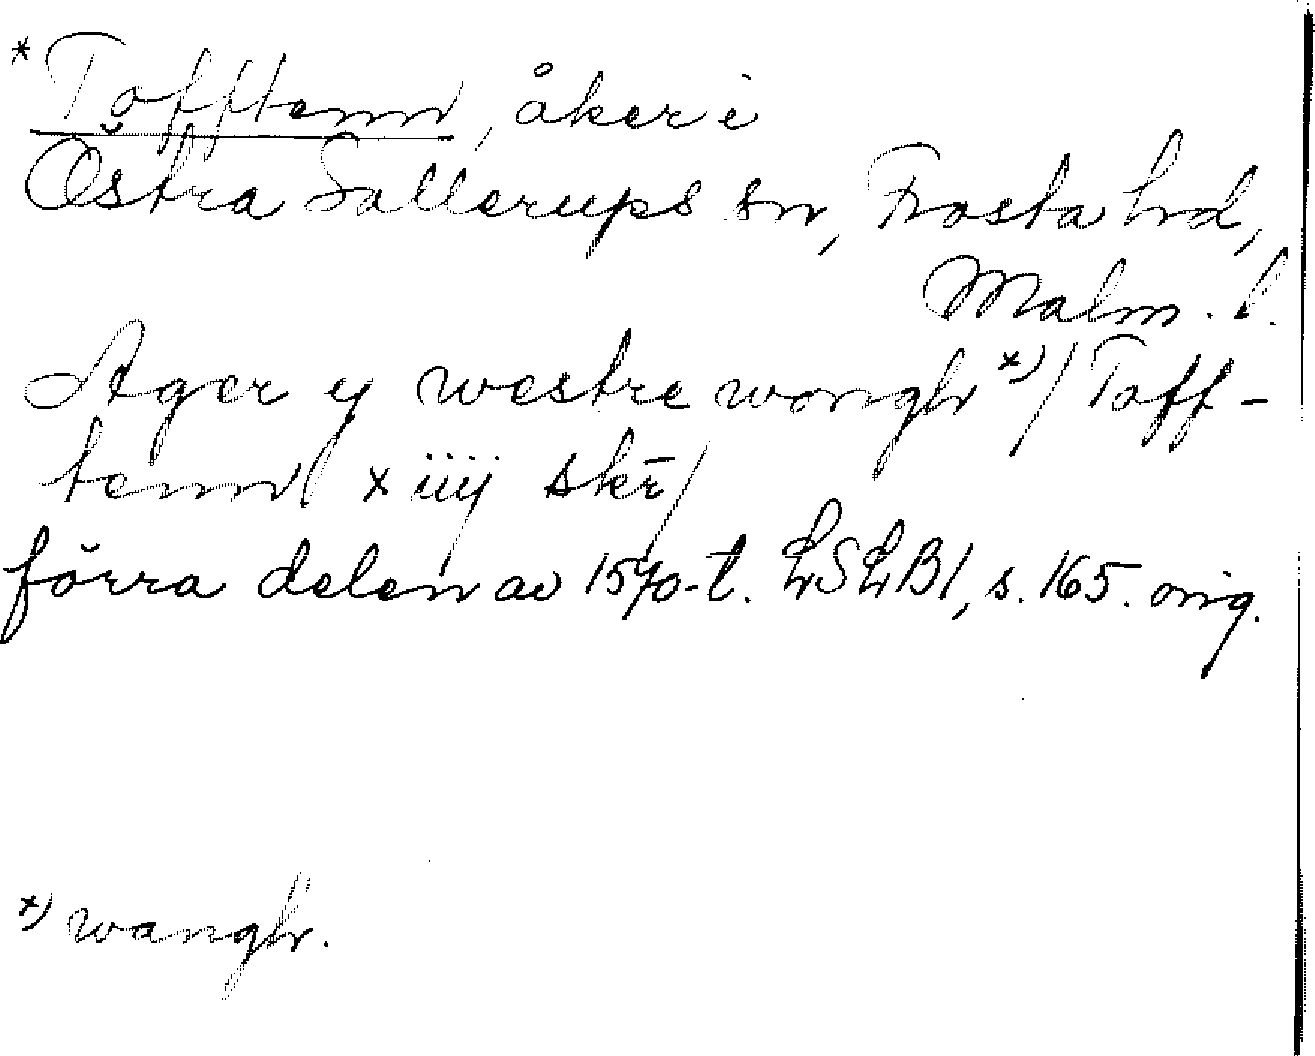 * Tofftenn, åker i
Östra Sallerups sn, Frosta hd,
Malm. l.
Ager y westre wongh *)/ Toff-
tenn xiiij skr̄/
förra delen av 1570-t. LSLB1, s. 165. orig.
*) wangh.